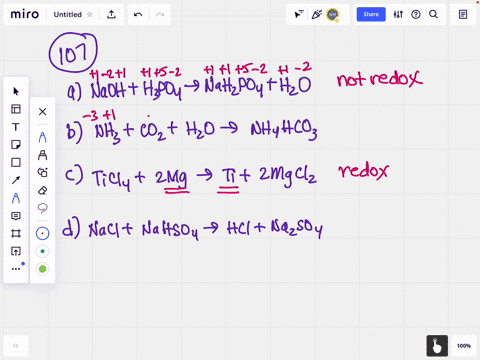 miro Untitled Share
107
+1 -2 +1 +1 +5 -2 +1 +1 +5 -2 +1 -2
a) NaOH + H3PO4 → NaH2PO4 + H2O not redox
-3 +1
b) NH3 + CO2 + H2O → NH4HCO3
c) TiCl4 + 2Mg → Ti + 2MgCl2 redox
d) NaCl + NaHSO4 → HCl + Na2SO4
100%